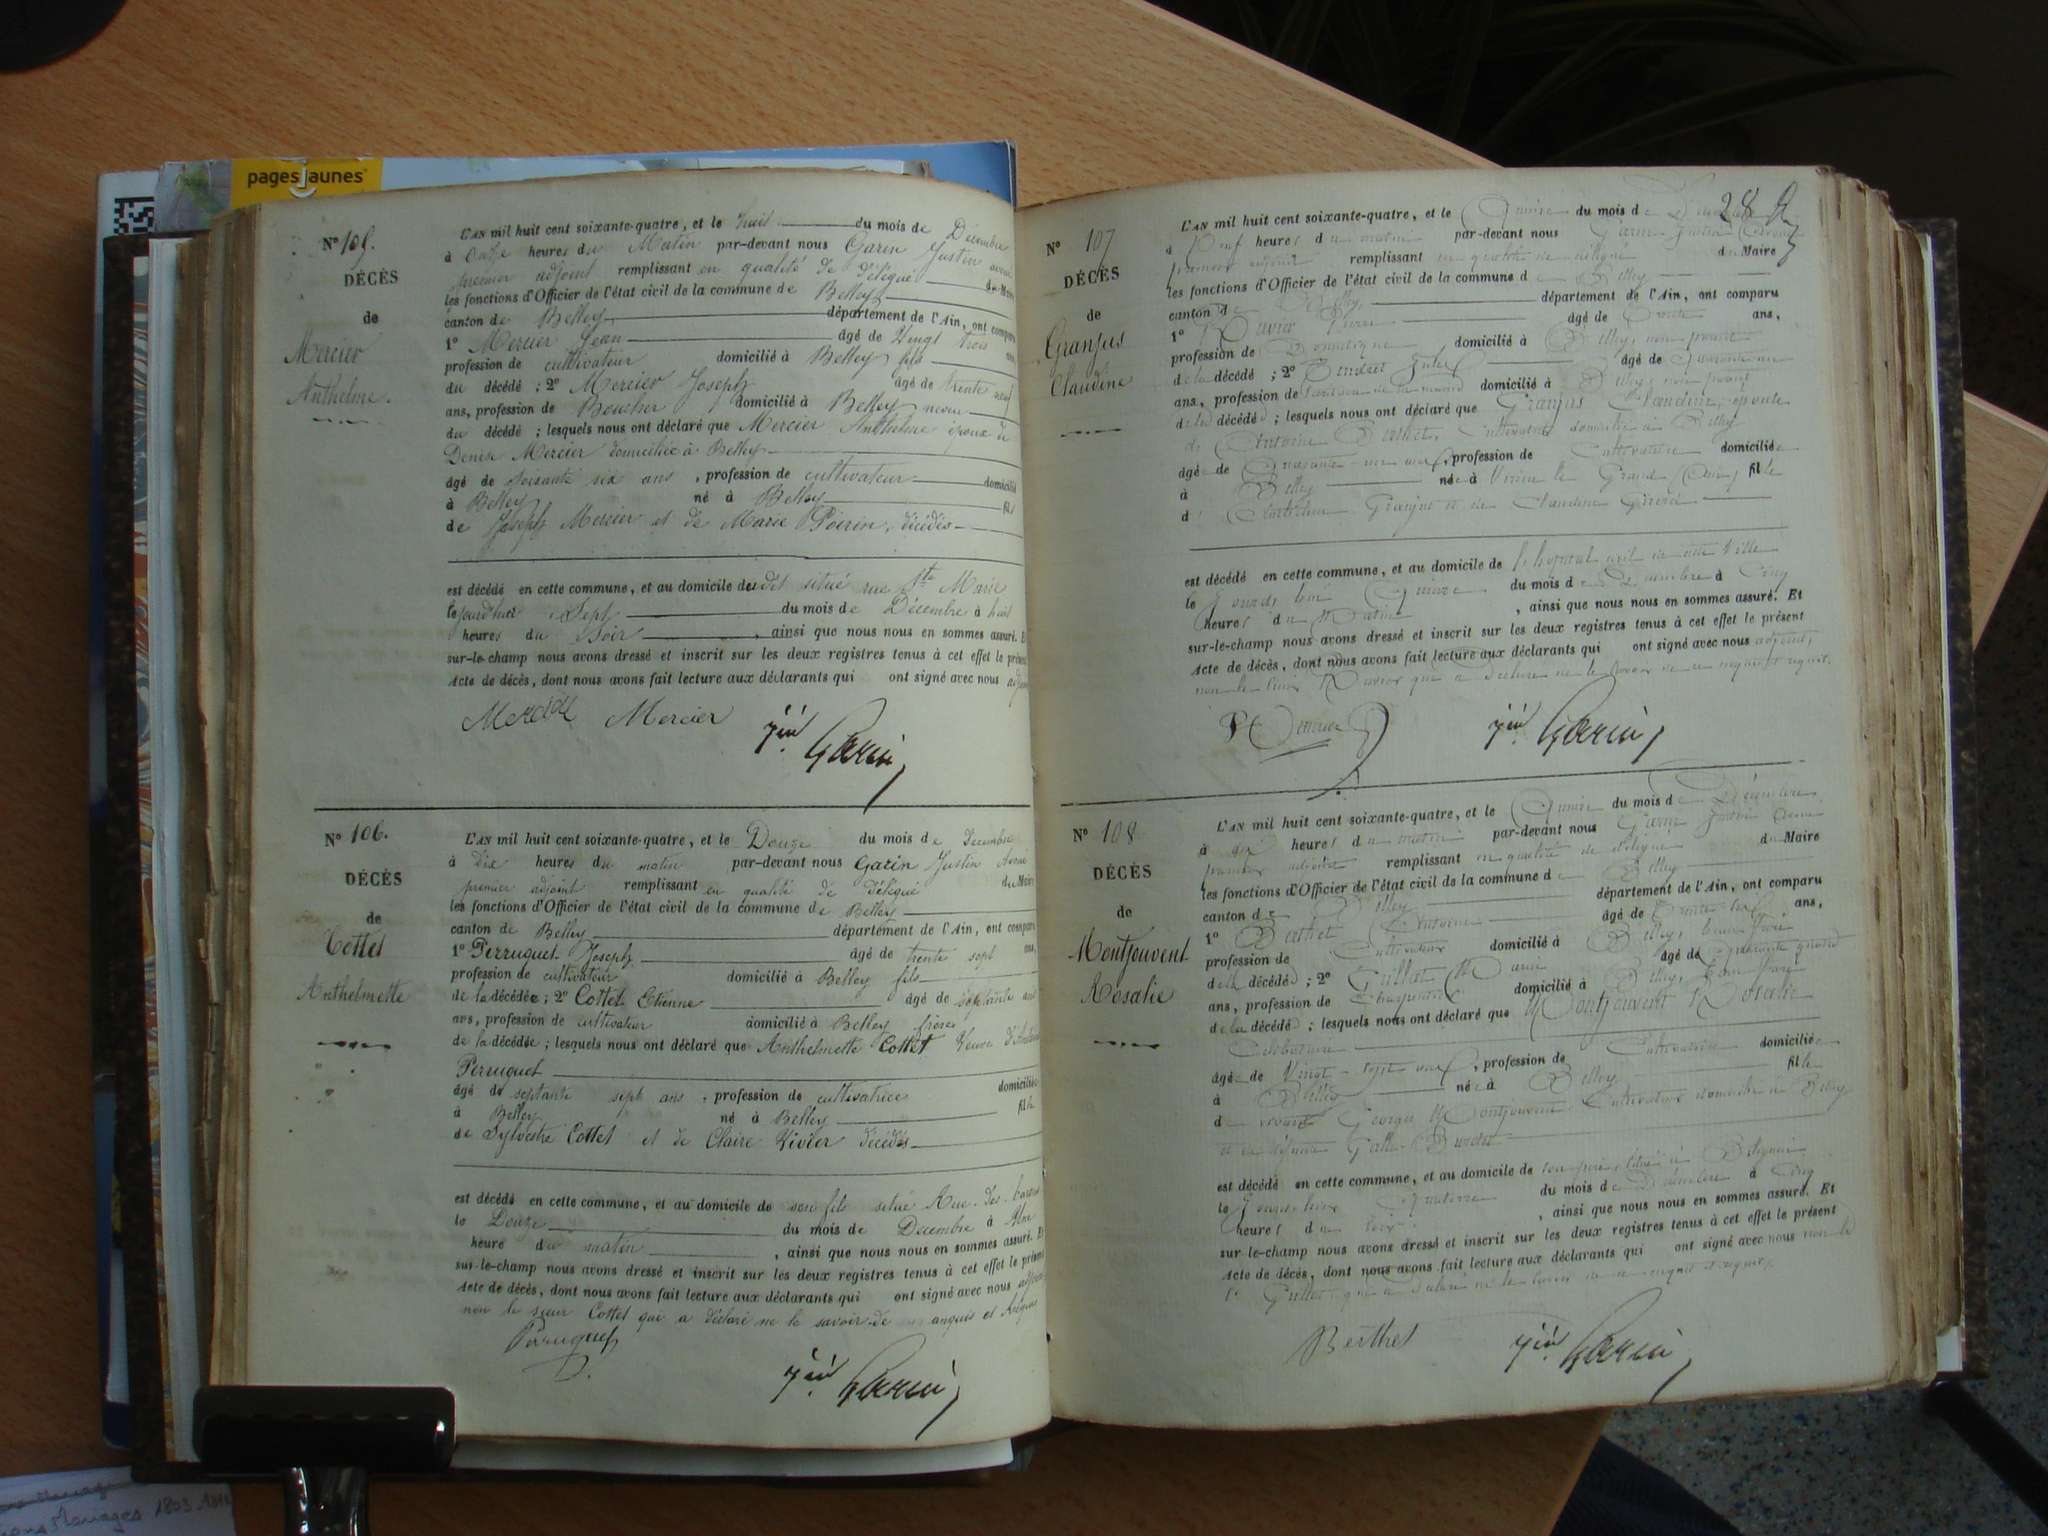 pages jaunes
N° 105.
DÉCÈS
de
Mercier
Anthelme.
L'AN mil huit cent soixante-quatre, et le huit du mois de Décembre
à onze heures du Matin par-devant nous Garin Justin avoué
premier adjoint remplissant en qualité de délégué du Maire
les fonctions d'Officier de l'état civil de la commune de Belley
canton de Belley département de l'Ain, ont comparu
1° Mercier Jean âgé de Vingt trois ans
profession de cultivateur domicilié à Belley fils
du décédé ; 2° Mercier Joseph âgé de trente neuf
ans, profession de Boucher domicilié à Belley neveu
du décédé ; lesquels nous ont déclaré que Mercier Anthelme époux de
Denise Mercier domiciliée à Belley
âgé de soixante six ans , profession de cultivateur domicilié
à Belley né à Belley fils
de Joseph Mercier et de Marie Poirin, décédés
est décédé en cette commune, et au domicile dudit situé rue Ste Marie
le jourd'hier Sept du mois de Décembre à huit
heures du Soir , ainsi que nous nous en sommes assuré. Et
sur-le-champ nous avons dressé et inscrit sur les deux registres tenus à cet effet le présent
acte de décès, dont nous avons fait lecture aux déclarants qui ont signé avec nous adjoint
Mercier Mercier
Jin Garin
N° 106.
DÉCÈS
de
Cottet
Anthelmette
L'AN mil huit cent soixante-quatre, et le Douze du mois de Décembre
à dix heures du matin par-devant nous Garin Justin Avoué
premier adjoint remplissant en qualité de délégué du Maire
les fonctions d'Officier de l'état civil de la commune de Belley
canton de Belley département de l'Ain, ont comparu
1° Perruquet Joseph âgé de trente sept ans,
profession de cultivateur domicilié à Belley fils
de la décédée ; 2° Cottet Etienne âgé de septante
ans, profession de cultivateur domicilié à Belley frère
de la décédée ; lesquels nous ont déclaré que Anthelmette Cottet Veuve d'Antoine
Perruquet
âgé de septante sept ans , profession de cultivatrice domiciliée
à Belley né à Belley fille
de Sylvestre Cottet et de Claire Vivier décédés
est décédé en cette commune, et au domicile de son fils situé Rue des
le Douze du mois de Décembre à Une
heure du matin , ainsi que nous nous en sommes assuré. Et
sur-le-champ nous avons dressé et inscrit sur les deux registres tenus à cet effet le présent
acte de décès, dont nous avons fait lecture aux déclarants qui ont signé avec nous adjoint
non le sieur Cottet qui a déclaré ne le savoir de ce enquis et requis
Perruquet
Jin Garin
28
N° 107
DÉCÈS
de
Granjus
Claudine
L'AN mil huit cent soixante-quatre, et le Quinze du mois de Décembre
à Neuf heures du matin par-devant nous Garin Justin Avoué
premier adjoint remplissant en qualité de délégué du Maire
les fonctions d'Officier de l'état civil de la commune de Belley
canton de Belley département de l'Ain, ont comparu
1° Ruvier Pierre âgé de Trente ans,
profession de Domestique domicilié à Belley, non parent
de la décédée ; 2° âgé de Quarante
ans, profession de Secrétaire de la mairie domicilié à Belley, non parent
de la décédée ; lesquels nous ont déclaré que Granjus Claudine, épouse
de Antoine Berthet, Cultivateur domicilié à Belley
âgé de Cinquante un ans, profession de Cultivatrice domiciliée
à Belley née à Virieu le Grand (Ain) fille
d' Anthelme Granjus et de Claudine
est décédé en cette commune, et au domicile de l'hopital civil de cette Ville
le Jourd'hui Quinze du mois de Décembre à Cinq
heures du Matin , ainsi que nous nous en sommes assuré. Et
sur-le-champ nous avons dressé et inscrit sur les deux registres tenus à cet effet le présent
acte de décès, dont nous avons fait lecture aux déclarants qui ont signé avec nous adjoint,
non le sieur Ruvier qui a déclaré ne le savoir de ce enquis et requis.
Jin Garin
N° 108
DÉCÈS
de
Montjouvent
Rosalie
L'AN mil huit cent soixante-quatre, et le Quinze du mois de Décembre
à dix heures du matin par-devant nous Garin Justin Avoué
premier adjoint remplissant en qualité de délégué du Maire
les fonctions d'Officier de l'état civil de la commune de Belley
canton de Belley département de l'Ain, ont comparu
1° Berthet Antoine âgé de Trente ans,
profession de Cultivateur domicilié à Belley, beau frère
de la décédée ; 2° Guillot Marie âgé de quarante quatre
ans, profession de Charpentier domicilié à Belley, beau frère
de la décédée ; lesquels nous ont déclaré que Montjouvent Rosalie
Célibataire
âgée de Vingt-sept ans, profession de Cultivatrice domiciliée
à Belley née à Belley fille
de vivant Georges Montjouvent, Cultivateur domicilié à Belley
et de défunte
est décédé en cette commune, et au domicile de son père, situé à
le Jourd'hier Quatorze du mois de Décembre à Cinq
heures du soir , ainsi que nous nous en sommes assuré. Et
sur-le-champ nous avons dressé et inscrit sur les deux registres tenus à cet effet le présent
acte de décès, dont nous avons fait lecture aux déclarants qui ont signé avec nous non le
Sr Guillot qui a déclaré ne le savoir de ce enquis et requis.
Berthet
Jin Garin
Mariages 1803